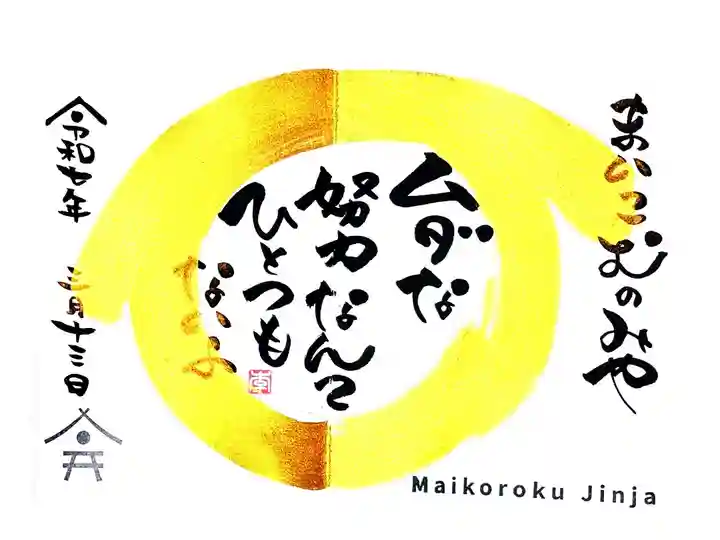 まいころくのみや
ムダな
努力なんて
ひとつも
ないよ
令和七年 三月十三日
Maikoroku Jinja